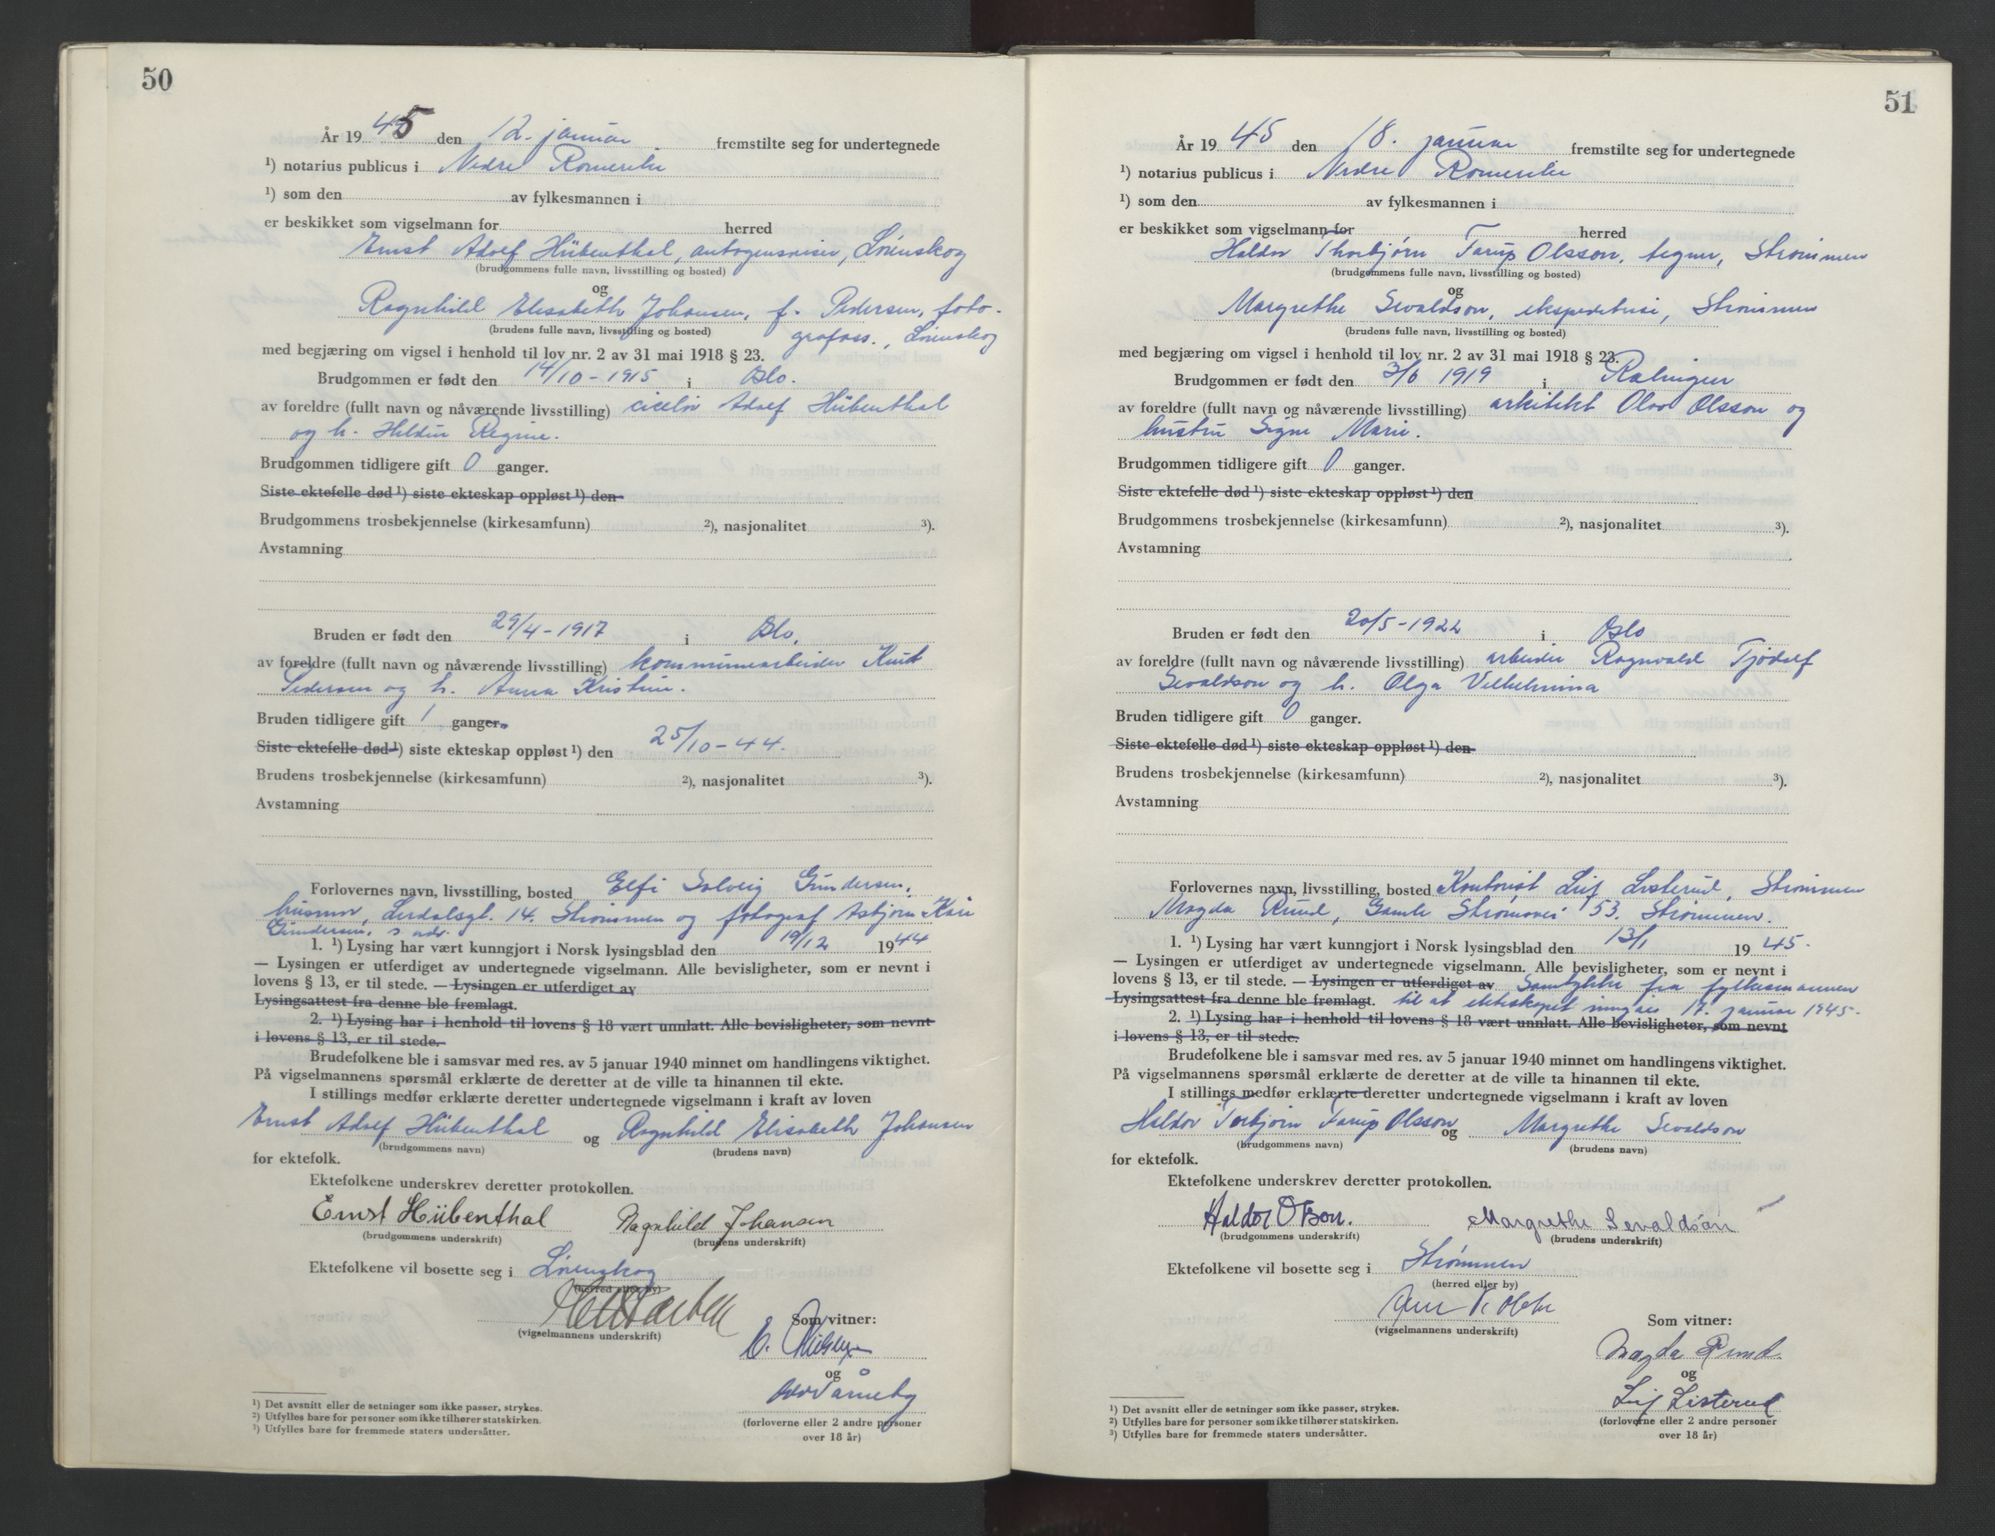 50
År 1945 den 12. januar fremstilte seg for undertegnede
¹) notarius publicus i Nedre Romerike
¹) som den av fylkesmannen i
er beskikket som vigselmann for herred
Ernst Adolf Hübenthal, autogensveiser, Lörenskog
(brudgommens fulle navn, livsstilling og bosted)
og
Ragnhild Elisabeth Johansen, f. Pedersen, foto-
(brudens fulle navn, livsstilling og bosted)
grafass., Lörenskog
med begjæring om vigsel i henhold til lov nr. 2 av 31 mai 1918 § 23.
Brudgommen er født den 14/10-1915 i Oslo.
av foreldre (fullt navn og nåværende livsstilling) ciselör Adolf Hübenthal
og h. Hildur Regine.
Brudgommen tidligere gift 0 ganger.
Siste ektefelle død ¹) siste ekteskap oppløst ¹) den
Brudgommens trosbekjennelse (kirkesamfunn) ²), nasjonalitet ³).
Avstamning
Bruden er født den 29/4-1917 i Oslo.
av foreldre (fullt navn og nåværende livsstilling) kommunearbeider Knut
Pedersen og h. Anna Kristine.
Bruden tidligere gift 1 ganger.
Siste ektefelle død ¹) siste ekteskap oppløst ¹) den 25/10-44.
Brudens trosbekjennelse (kirkesamfunn) ²), nasjonalitet ³).
Avstamning
Forlovernes navn, livsstilling, bosted Elfi Solveig Gundersen,
husmor, Lerdalsgt. 14. Strömmen og fotograf Asbjörn Kåre
Gundersen, s. adr.
1. ¹) Lysing har vært kunngjort i Norsk lysingsblad den 19/12 1944
— Lysingen er utferdiget av undertegnede vigselmann. Alle bevisligheter, som er nevnt i
lovens § 13, er til stede. — Lysingen er utferdiget av
Lysingsattest fra denne ble fremlagt.
2. ¹) Lysing har i henhold til lovens § 18 vært unnlatt. Alle bevisligheter, som nevnt
i lovens § 13, er til stede.
Brudefolkene ble i samsvar med res. av 5 januar 1940 minnet om handlingens viktighet.
På vigselmannens spørsmål erklærte de deretter at de ville ta hinannen til ekte.
I stillings medfør erklærte deretter undertegnede vigselmann i kraft av loven
Ernst Adolf Hübenthal og Ragnhild Elisabeth Johansen
(brudgommens navn) (brudens navn)
for ektefolk.
Ektefolkene underskrev deretter protokollen.
Ernst Hübenthal Ragnhild Johansen
(brudgommens underskrift) (brudens underskrift)
Ektefolkene vil bosette seg i Lörenskog
(herred eller by)
Som vitner:
(vigselmannens underskrift)
og
(forloverne eller 2 andre personer
over 18 år)
¹) Det avsnitt eller de setninger som ikke passer, strykes.
²) Utfylles bare for personer som ikke tilhører statskirken.
³) Utfylles bare for fremmede staters undersåtter.
51
År 1945 den 18. januar fremstilte seg for undertegnede
¹) notarius publicus i Nedre Romerike
¹) som den av fylkesmannen i
er beskikket som vigselmann for herred
Haldor Thorbjørn Tarup Olsson, tegner, Strömmen
(brudgommens fulle navn, livsstilling og bosted)
og
Margrethe Sevaldson, ekspeditrise, Strömmen
(brudens fulle navn, livsstilling og bosted)
med begjæring om vigsel i henhold til lov nr. 2 av 31 mai 1918 § 23.
Brudgommen er født den 3/6 1919 i Rælingen
av foreldre (fullt navn og nåværende livsstilling) arkitekt Olov Olsson og
hustru Signe Marie.
Brudgommen tidligere gift 0 ganger.
Siste ektefelle død ¹) siste ekteskap oppløst ¹) den
Brudgommens trosbekjennelse (kirkesamfunn) ²), nasjonalitet ³).
Avstamning
Bruden er født den 20/5-1922 i Oslo
av foreldre (fullt navn og nåværende livsstilling) arbeider Ragnvald Tjodolf
Sevaldson og h. Olga Vilhelmina
Bruden tidligere gift 0 ganger.
Siste ektefelle død ¹) siste ekteskap oppløst ¹) den
Brudens trosbekjennelse (kirkesamfunn) ²), nasjonalitet ³).
Avstamning
Forlovernes navn, livsstilling, bosted Kontorist Leif Listerud, Strömmen
Magda Rund, Gamle Strømsvei 53. Strømmen.
1. ¹) Lysing har vært kunngjort i Norsk lysingsblad den 13/1 1945.
— Lysingen er utferdiget av undertegnede vigselmann. Alle bevisligheter, som er nevnt i
lovens § 13, er til stede. — Lysingen er utferdiget av Samtykke fra fylkesmannen
Lysingsattest fra denne ble fremlagt. til at ekteskapet inngåes 17. januar 1945.
2. ¹) Lysing har i henhold til lovens § 18 vært unnlatt. Alle bevisligheter, som nevnt
i lovens § 13, er til stede.
Brudefolkene ble i samsvar med res. av 5 januar 1940 minnet om handlingens viktighet.
På vigselmannens spørsmål erklærte de deretter at de ville ta hinannen til ekte.
I stillings medfør erklærte deretter undertegnede vigselmann i kraft av loven
Haldor Torbjörn Tarup Olsson og Margrethe Sevaldson
(brudgommens navn) (brudens navn)
for ektefolk.
Ektefolkene underskrev deretter protokollen.
Haldor Olsson. Margrethe Sevaldson
(brudgommens underskrift) (brudens underskrift)
Ektefolkene vil bosette seg i Strømmen
(herred eller by)
Som vitner:
(vigselmannens underskrift)
Magda Rund.
og
Leif Listerud
(forloverne eller 2 andre personer
over 18 år)
¹) Det avsnitt eller de setninger som ikke passer, strykes.
²) Utfylles bare for personer som ikke tilhører statskirken.
³) Utfylles bare for fremmede staters undersåtter.